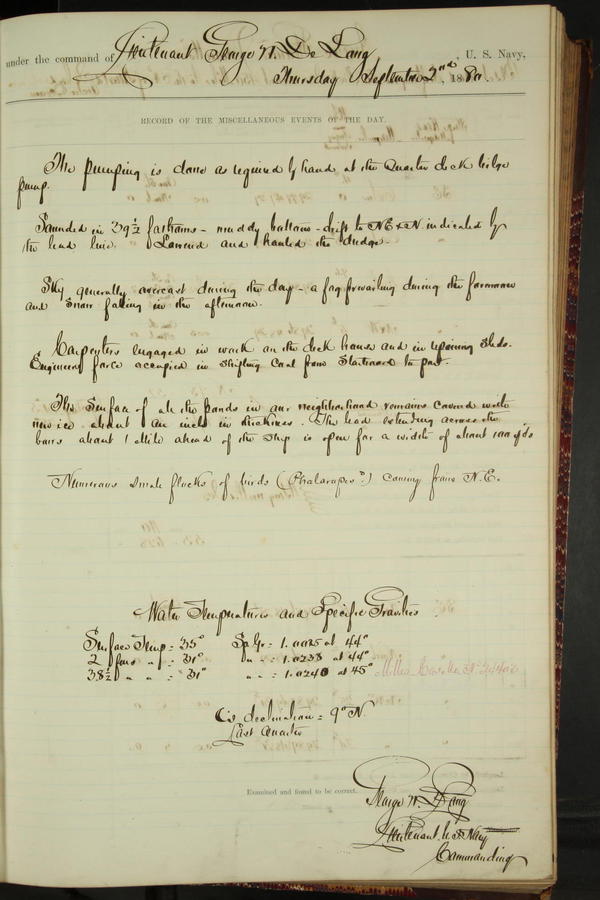 under the command of Lieutenant George W. De Long, U. S. Navy,
Thursday September 2nd, 1880.
RECORD OF THE MISCELLANEOUS EVENTS OF THE DAY.
The pumping is done as required by hand, at the Quarter deck bilge
pump.
Sounded in 39½ fathoms - muddy bottom - drift to indicated by
the lead line. Lowered and hauled the dredge.
Sky generally overcast during the day - a fog prevailing during the forenoon
and snow falling in the afternoon.
Carpenters engaged in work on the deck house and in repairing sleds.
Engineers force occupied in shifting coal from Starboard to port.
The surface of all the ponds in our neighborhood remains covered with
new ice about an inch in thickness. The lead extending across the
bows about 1 mile ahead of the ship is open for a width of about 100 yds
Numerous small flocks of birds (Phalaropes?) coming from N.E.
Water Temperatures and Specific Gravities
Surface Temp = 35° Sp Gr = 1.0025 at 44°
2 fms " = 31° " " = 1.0238 at 44°
38½ " " = 31° " " = 1.0240 at 45°
C's declination = 9° N.
Last Quarter
Examined and found to be correct.
George W. De Long
Lieutenant U.S. Navy
Commanding